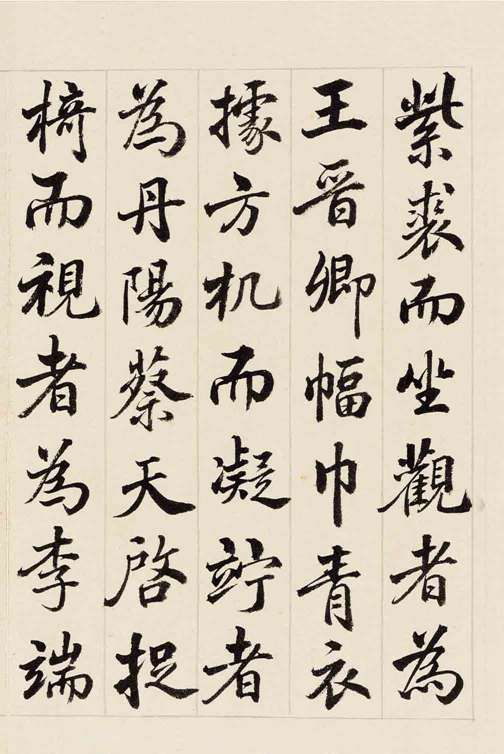 紫裘而坐觀者為
王晉卿幅巾青衣
據方机而凝竚者
為丹陽蔡天啓捉
椅而視者為李端